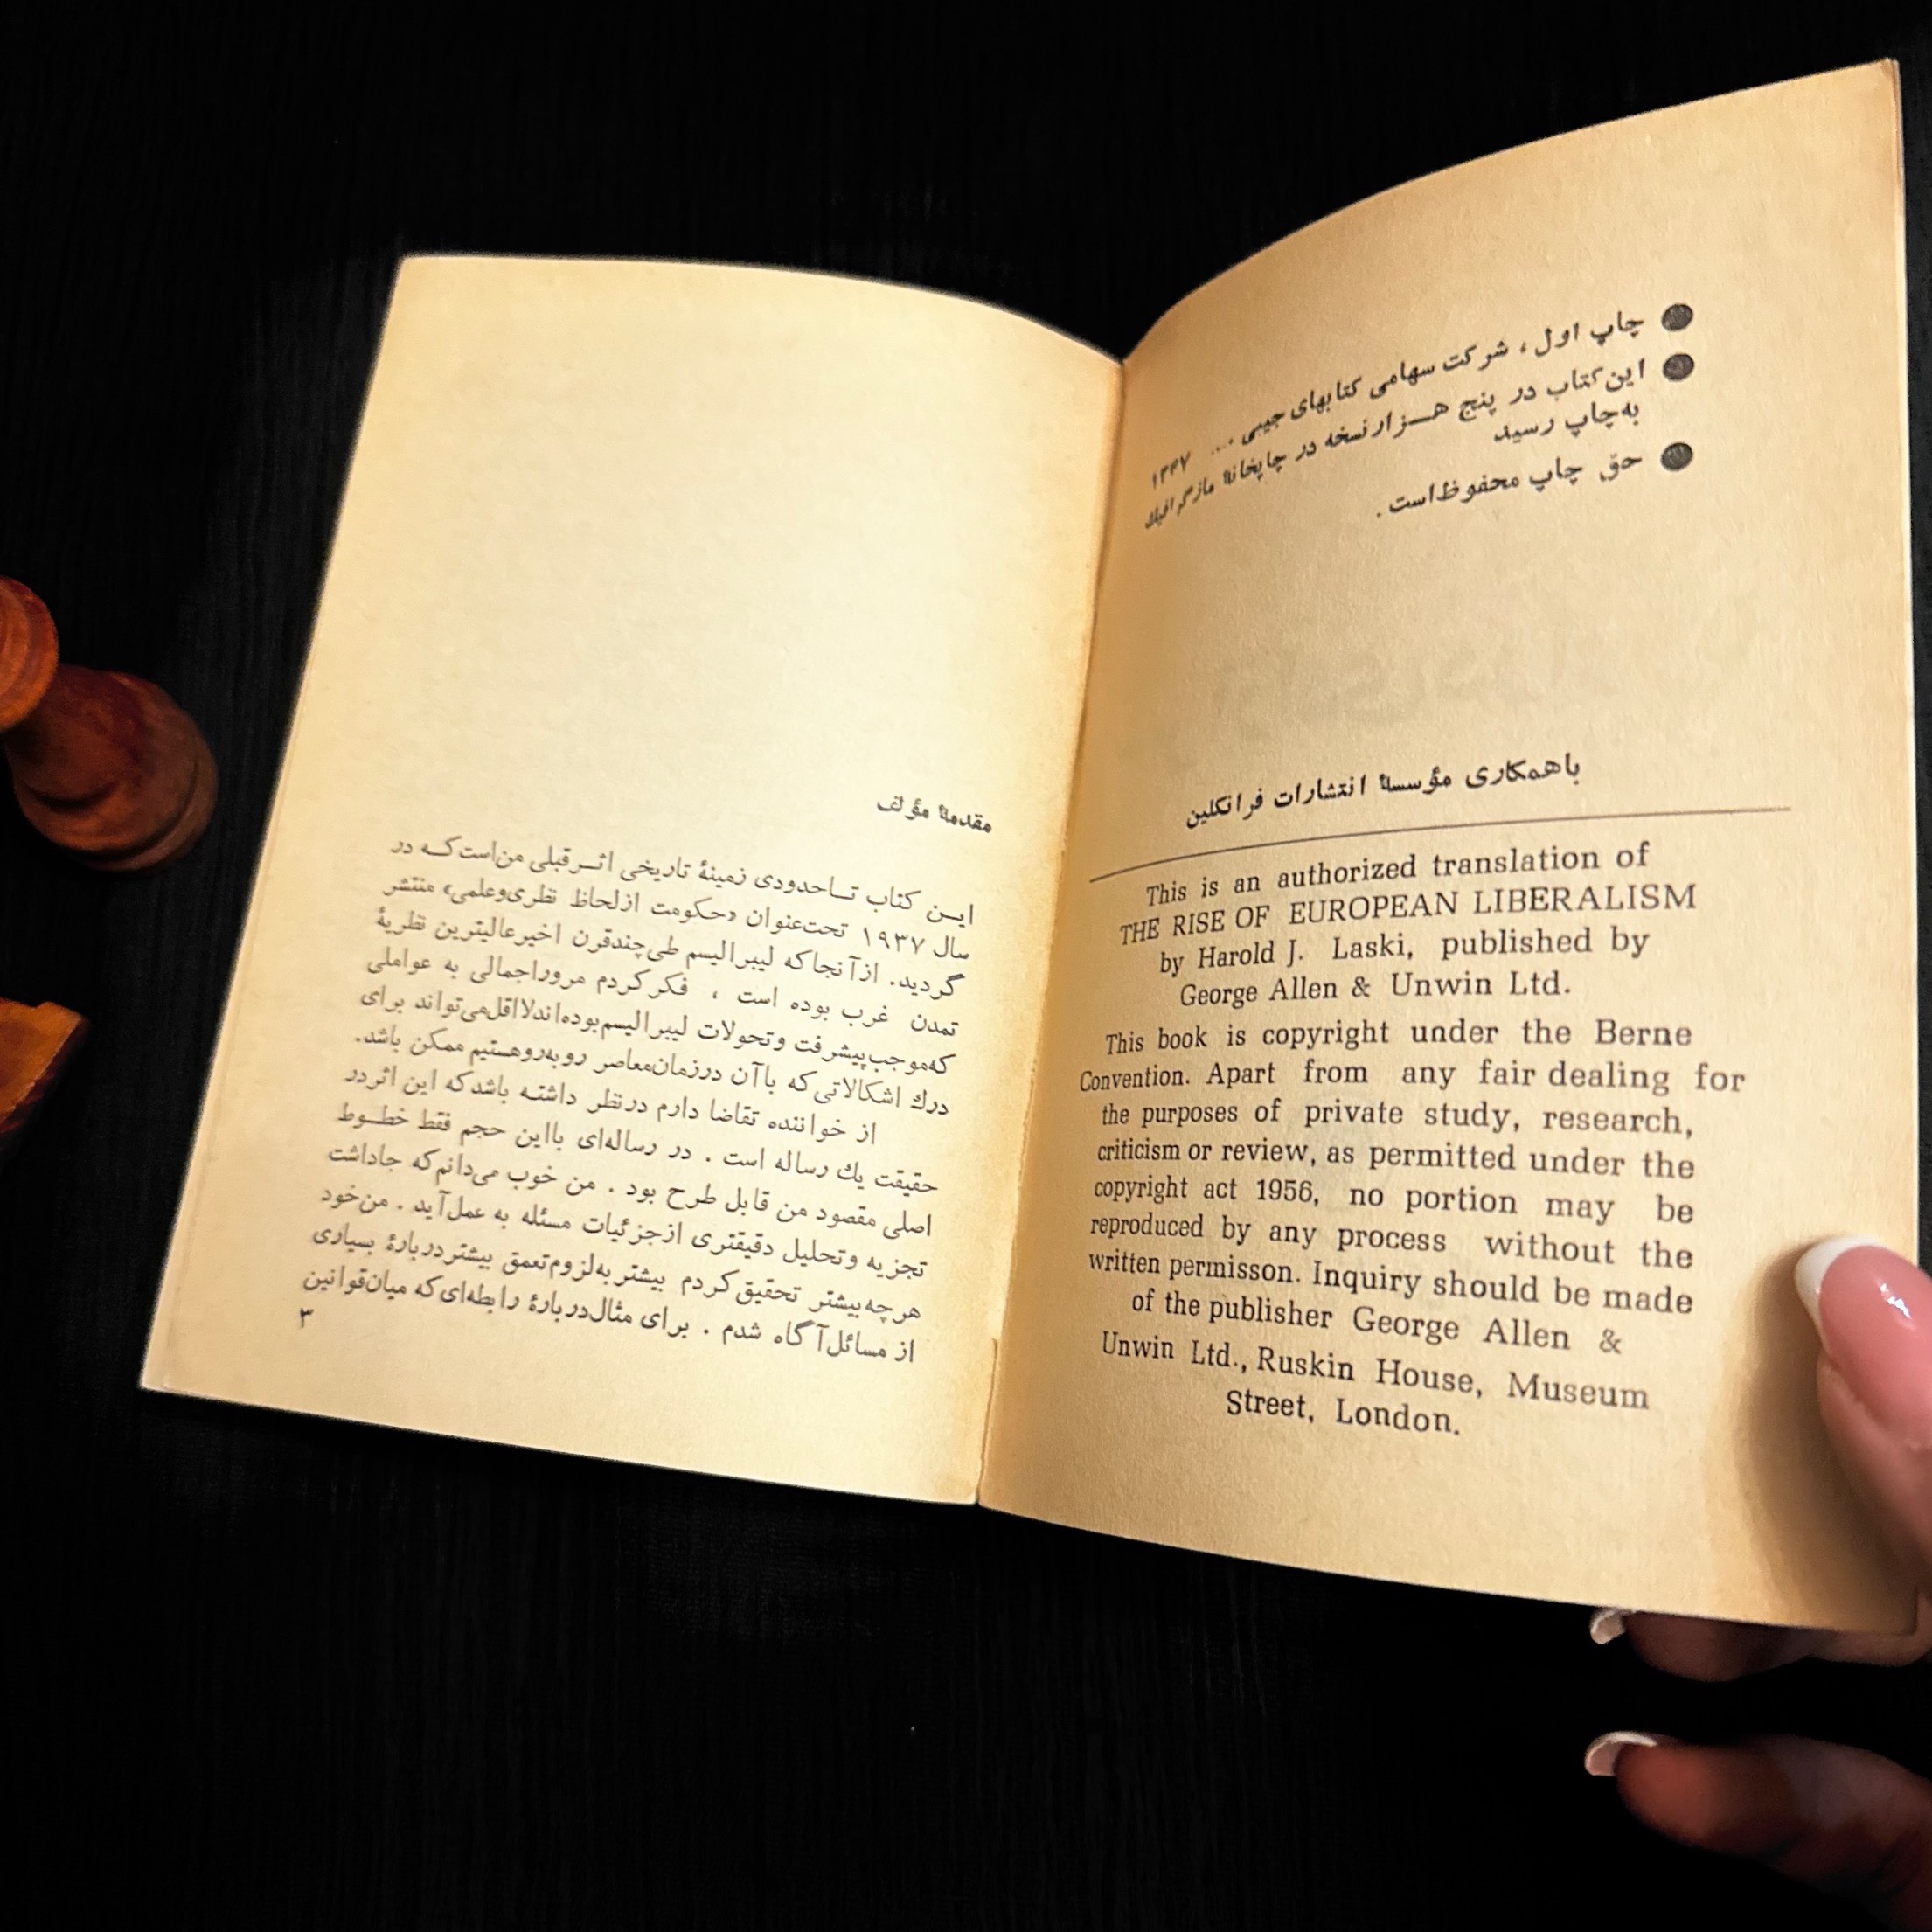 چاپ اول ، شرکت سهامی کتابهای جیبی .... ۱۳۴۷
این کتاب در پنج هـــزار نسخه در چاپخانهٔ مازگرافیک
به‌چاپ رسید
حق چاپ محفوظ است .
با همکاری مؤسسهٔ انتشارات فرانکلین
This is an authorized translation of
THE RISE OF EUROPEAN LIBERALISM
by Harold J. Laski, published by
George Allen & Unwin Ltd.
This book is copyright under the Berne
Convention. Apart from any fair dealing for
the purposes of private study, research,
criticism or review, as permitted under the
copyright act 1956, no portion may be
reproduced by any process without the
written permisson. Inquiry should be made
of the publisher George Allen &
Unwin Ltd., Ruskin House, Museum
Street, London.
مقدمهٔ مؤلف
ایـن کتاب تـاحدودی زمینهٔ تاریخی اثـر قبلی من‌است کـه در
سال ۱۹۳۷ تحت‌عنوان «حکومت ازلحاظ نظری‌وعلمی» منتشر
گردید. ازآنجا که لیبرالیسم طی‌چندقرن اخیر عالیترین نظریهٔ
تمدن غرب بوده است ، فکر کردم مروراجمالی به عواملی
که‌موجب‌پیشرفت وتحولات لیبرالیسم‌بوده‌اندلااقل‌می‌تواند برای
درک اشکالاتی که باآن درزمان‌معاصر روبه‌روهستیم ممکن باشد.
از خواننده تقاضا دارم درنظر داشته باشد که این اثردر
حقیقت یک رساله است . در رساله‌ای بااین حجم فقط خطـوط
اصلی مقصود من قابل طرح بود . من خوب می‌دانم که جاداشت
تجزیه وتحلیل دقیقتری ازجزئیات مسئله به عمل‌آید . من‌خود
هرچه‌بیشتر تحقیق کردم بیشتر به‌لزوم‌تعمق بیشتردربارهٔ بسیاری
از مسائل آگاه شدم . برای مثال‌دربارهٔ رابطه‌ای که میان‌قوانین
۳